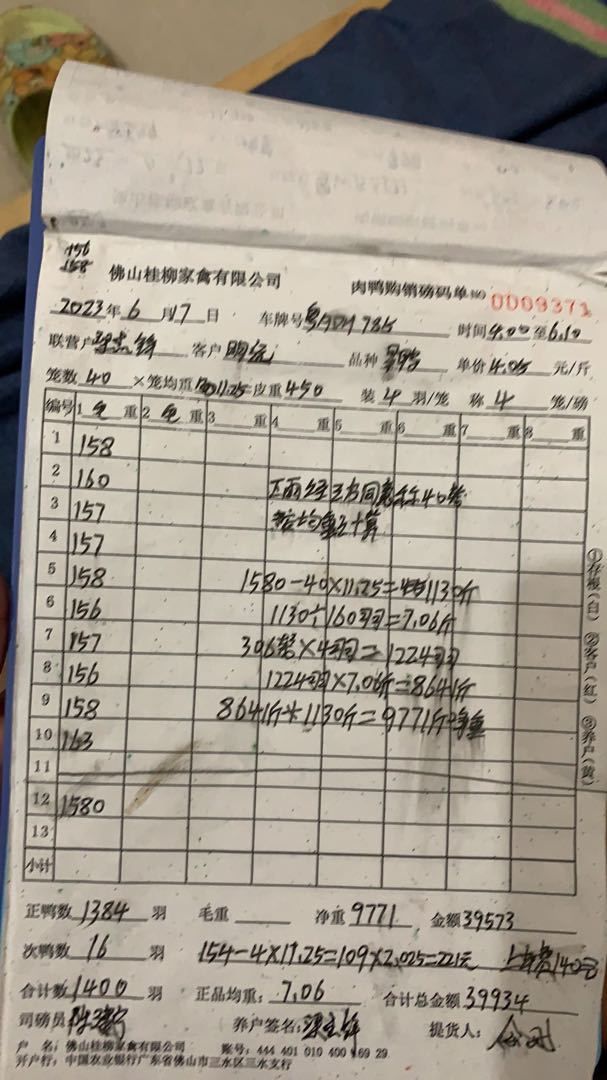 156
158
佛山桂柳家禽有限公司 肉鸭购销磅码单 NO 0009371
2023年6月17日 车牌号 785 时间4.00至6.10
联营户 客户 明 品种 单价4.05元/斤
笼数40×笼均重11.25皮重450 装4羽/笼 称4笼/磅
编号 1毛重 2毛重 3重 4重 5重 6重 7重 8重
1 158
2 160 下雨经三方同意称40笼
3 157 按均重计算
4 157
5 158 1580-40×11.25=1130斤
6 156 1130÷160羽=7.06斤
7 157 306笼×4羽=1224羽
8 156 1224羽×7.06斤=8641斤
9 158 8641斤+1130斤=9771斤净重
10 163
11
12 1580
13
小计
①存根(白) ②客户(红) ③养户(黄)
正鸭数1384羽 毛重 净重9771 金额39573
次鸭数16羽 154-4×11.25=109×2.025=221元 上车费140元
合计数1400羽 正品均重:7.06 合计总金额39934
司磅员 养户签名: 提货人:
户 名:佛山桂柳家禽有限公司 账号:444 401 010 400 69 29
开户行:中国农业银行广东省佛山市三水区三水支行